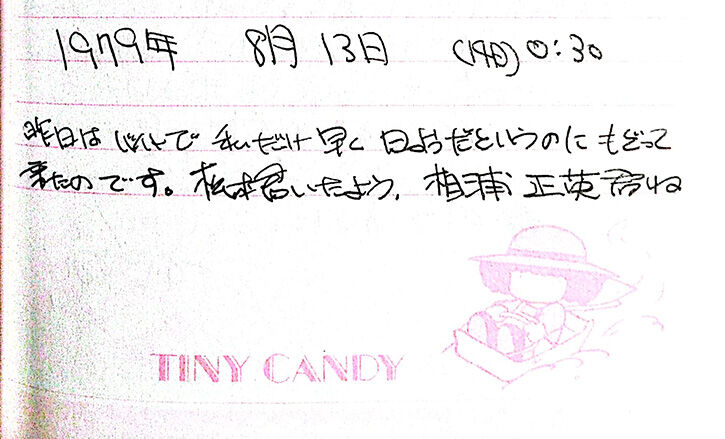 1979年 8月13日 (14日) 0:30
昨日はバイトで私だけ早く日ようだというのにもどって
来たのです。松本君いたよう、相浦正英君ね
TINY CANDY